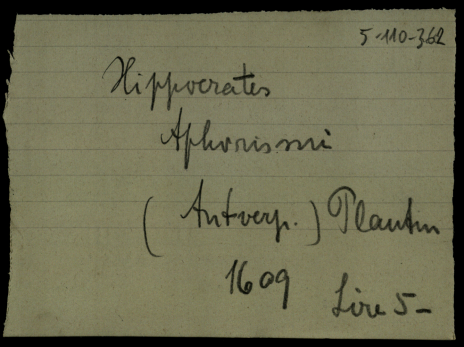 5-110-362
Hippocrates
Aphorismi
(Antverp.) Plantin
1609
Lire 5-